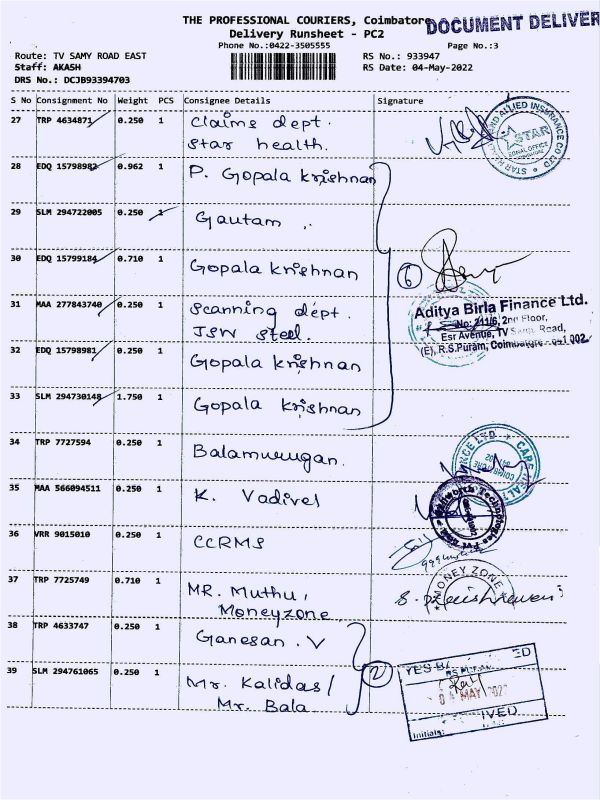 THE PROFESSIONAL COURIERS, Coimbatore
DOCUMENT DELIVER
Delivery Runsheet - PC2
Phone No.:0422-3505555
Page No.:3
Route: TV SAMY ROAD EAST
RS No.: 933947
Staff: AKASH
RS Date: 04-May-2022
DRS No.: DCJB93394703
S No Consignment No Weight PCS Consignee Details Signature
27 TRP 4634871 0.250 1 Claims dept.
Star health.
STAR
ZONAL OFFICE
28 EDQ 15798982 0.962 1 P. Gopala krishnan
29 SLM 294722005 0.250 1 Gautam
30 EDQ 15799184 0.710 1 Gopala krishnan
6
31 MAA 277843740 0.250 1 Scanning dept.
JSW steel.
Aditya Birla Finance Ltd.
No: 211/6, 2nd Floor,
Esr Avenue, TV Road,
(E), R.S.Puram, Coimbatore
32 EDQ 15798981 0.250 1 Gopala krishnan
33 SLM 294730148 1.750 1 Gopala krishnan
34 TRP 7727594 0.250 1 Balamurugan.
35 MAA 566094511 0.250 1 K. Vadivel
36 VRR 9015010 0.250 1 CCRMS
37 TRP 7725749 0.710 1 MR. Muthu,
Moneyzone
MONEY ZONE
38 TRP 4633747 0.250 1 Ganesan . V
2
39 SLM 294761065 0.250 1 Mr. Kalidas/
Mr. Bala
YES
MAY 2022
Initials: